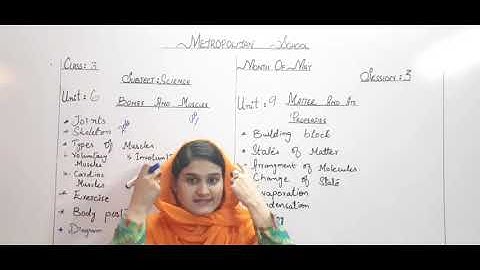 Metropolitan School
Class: 3
Month Of May
Subject: Science
Session: 3
Unit: 6
Bones And Muscles
Unit: 9 Matter And Its
Properties
* Joints
* Skeleton
* Types of Muscles
* Voluntary
Muscles
* Cardiac
Muscles
* Exercise
* Body
* Diagram
* Building block
* States of Matter
Arrangment of Molecules
Change of State
Evaporation